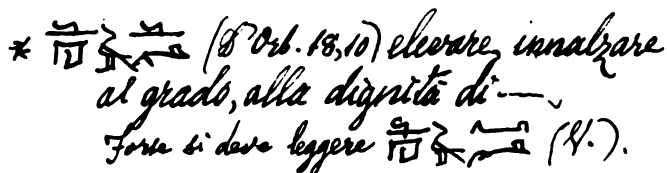 * (D'Orb. 18,10) elevare, innalzare
al grado, alla dignità di —.
Forse si deve leggere (V.).